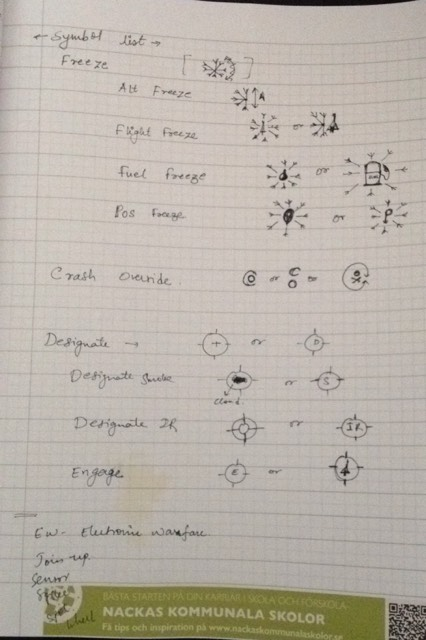 ← Symbol list →
Freeze
Alt Freeze A
Flight Freeze or
Fuel Freeze or
Pos Freeze or P
Crash Override or or
Designate → or D
Designate Smoke or S
cloud
Designate IR or IR
Engage E or
EW - Electronic Warfare
Join-up
Sensor
Wheel
BÄSTA STARTEN PÅ DIN KARRIÄR I SKOLA OCH FÖRSKOLA
NACKAS KOMMUNALA SKOLOR
Få tips och inspiration på www.nackaskommunalaskolor.se